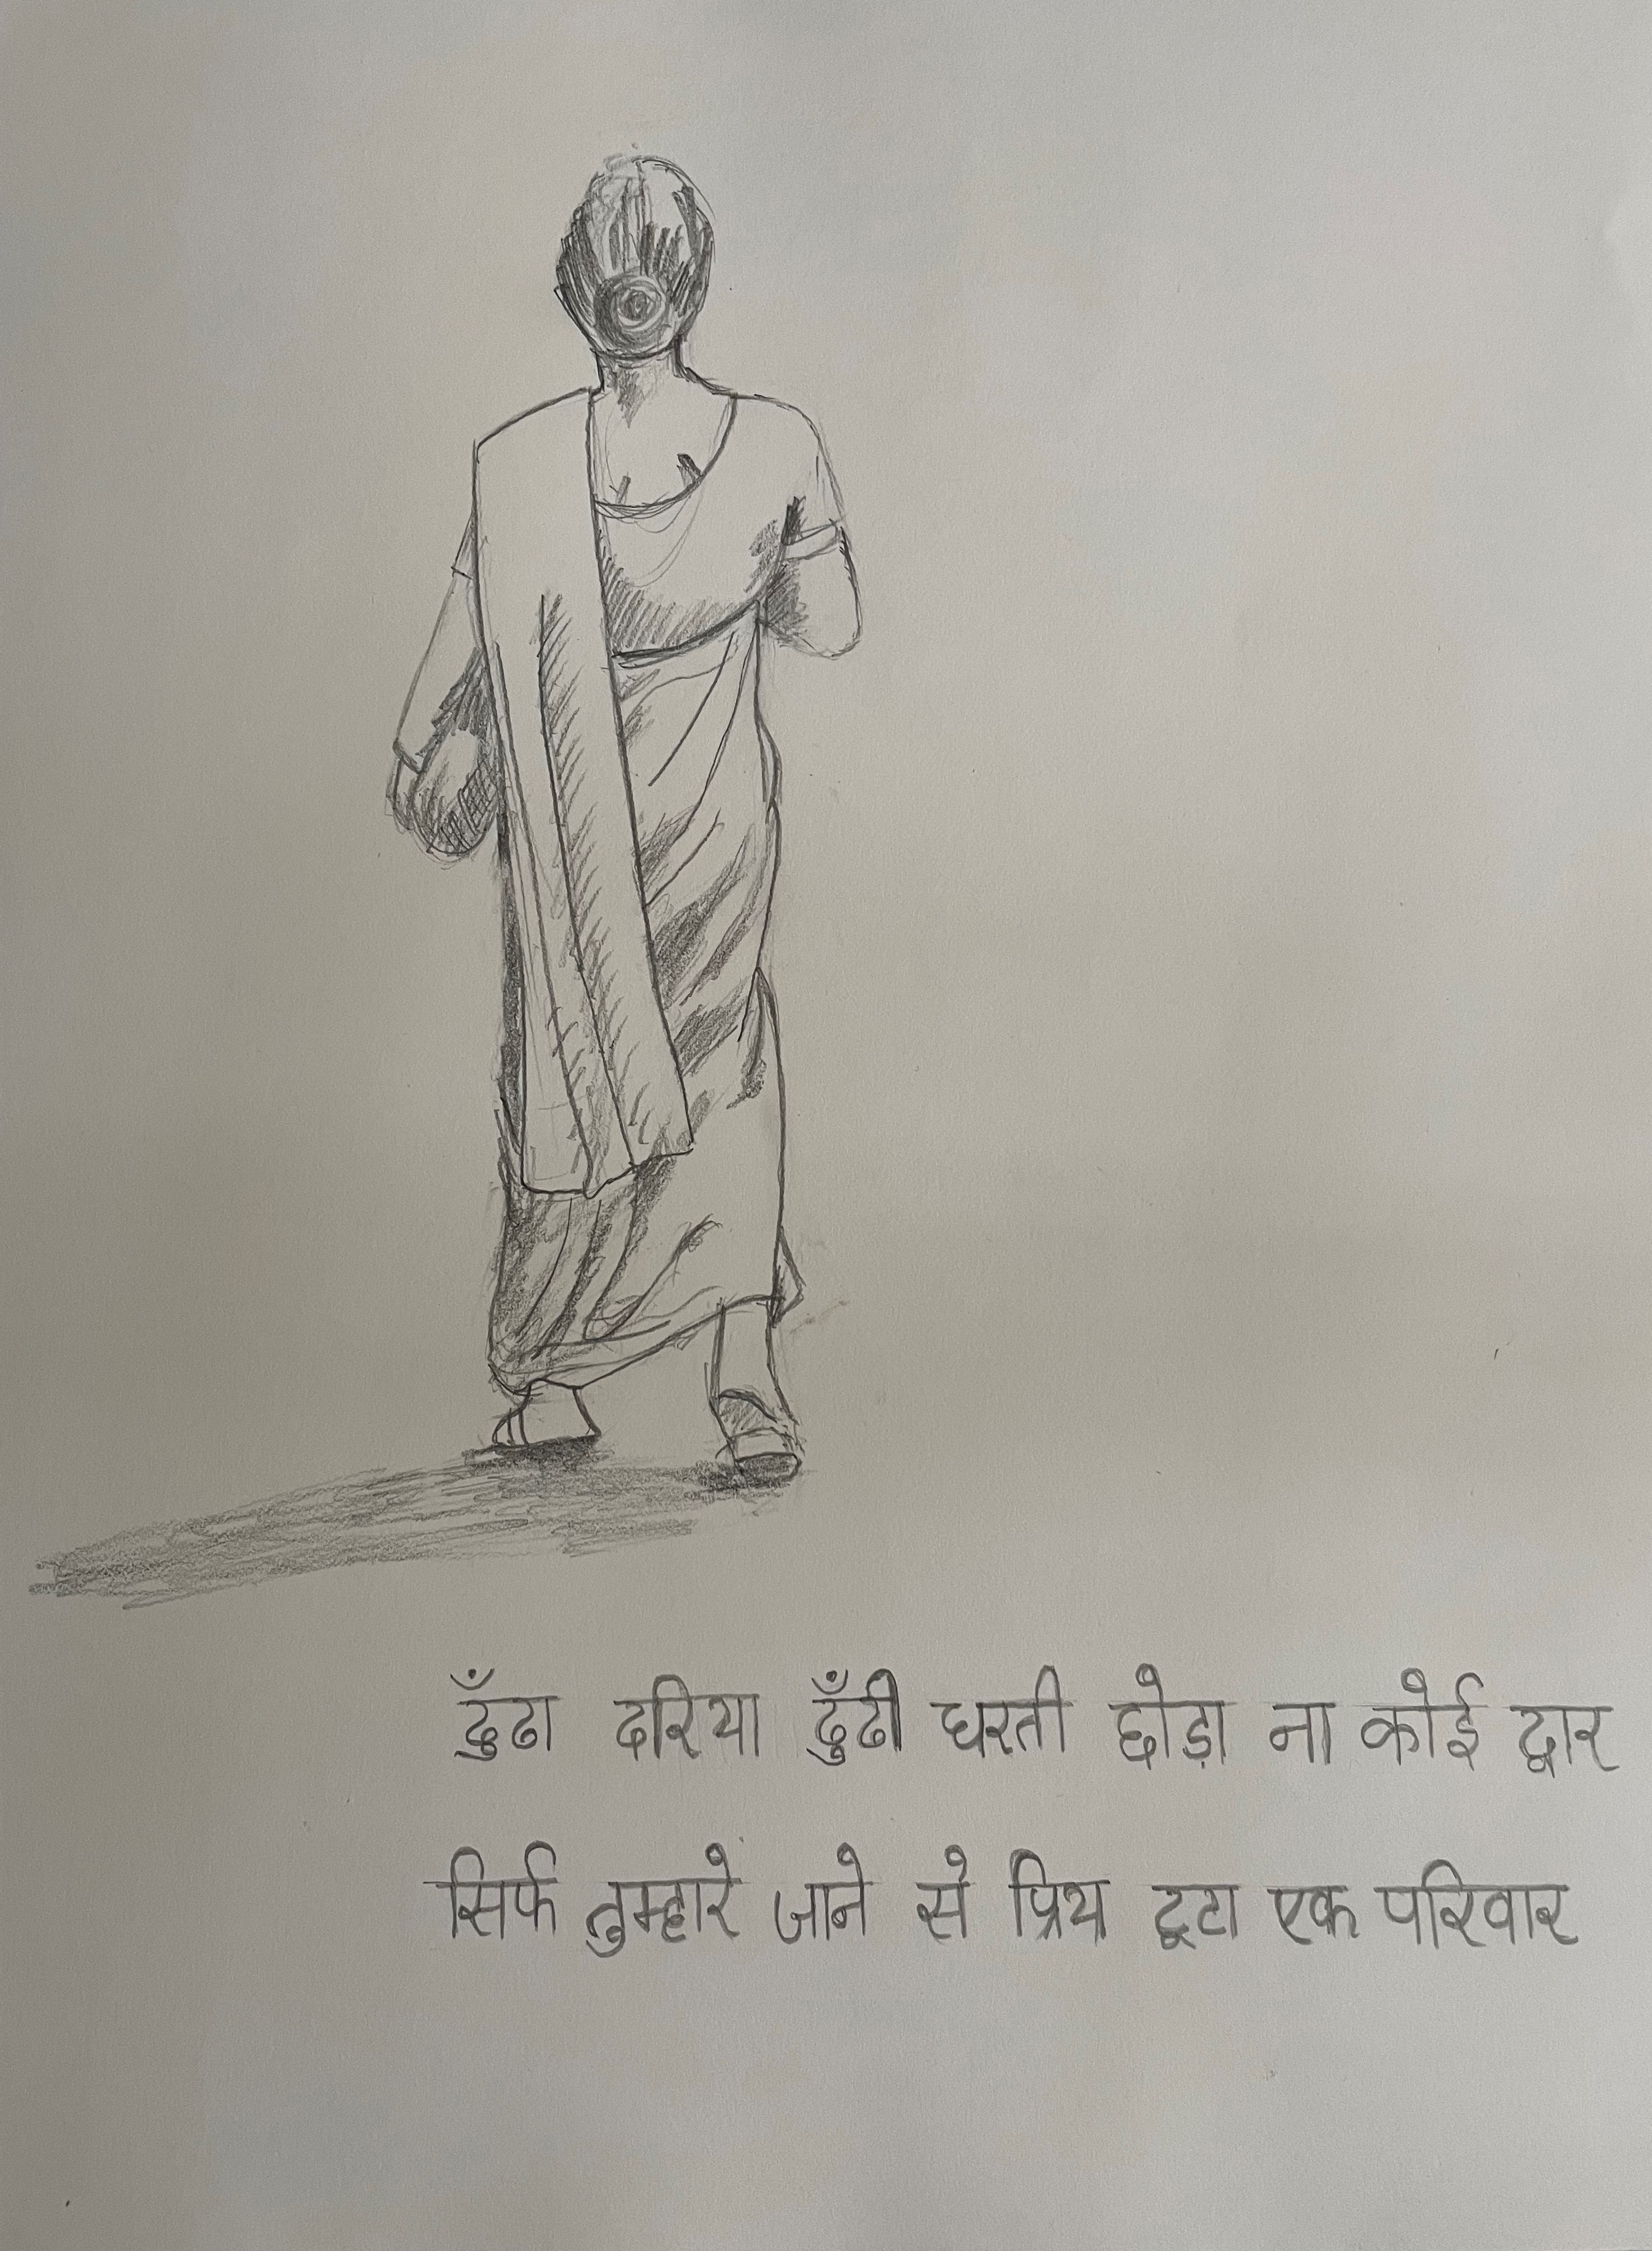 ढुँढा दरिया ढुँढी धरती छोड़ा ना कोई द्वार
सिर्फ तुम्हारे जाने से प्रिय टूटा एक परिवार